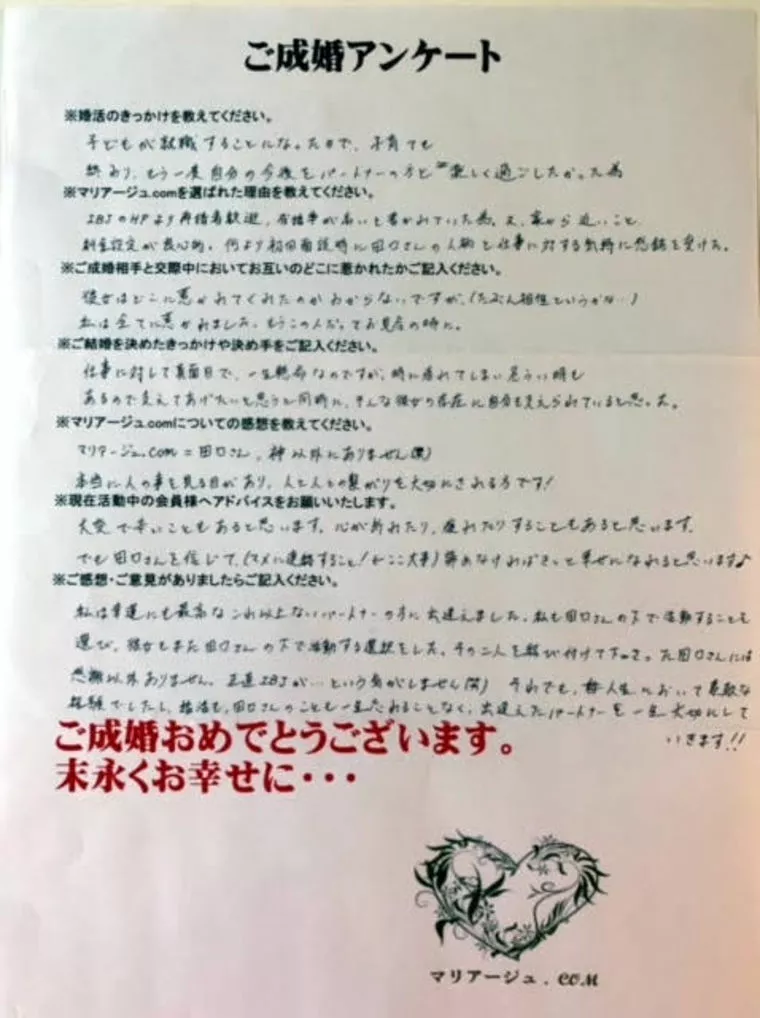 ご成婚アンケート
※婚活のきっかけを教えてください。
子どもが就職することになったので、子育ても
終わり、もう一度自分の今後をパートナーの方と楽しく過ごしたかった為
※マリアージュ.comを選ばれた理由を教えてください。
IBJのHPより再婚者歓迎、成婚率が高いと書かれていた為。又、家から近いこと
料金設定が良心的。何より初回面談時に田口さんの人柄と仕事に対する気持に感銘を受けた。
※ご成婚相手と交際中においてお互いのどこに惹かれたかご記入ください。
彼女はどこに惹かれてくれたのかわからないですが、(たぶん相性というかな…)
私は全てに惹かれました。もうこの人だってお見合の時に。
※ご結婚を決めたきっかけや決め手をご記入ください。
仕事に対して真面目で、一生懸命なのですが、時に疲れてしまい危うい時も
あるので支えてあげたいと思うと同時に、そんな彼女の存在に自分も支えられていると思った。
※マリアージュ.comについての感想を教えてください。
マリアージュ.com=田口さん。神以外にありません(笑)
本当に人の事を見る目があり、人と人との繋がりを大切にされる方です!
※現在活動中の会員様へアドバイスをお願いいたします。
大変で辛いこともあると思います。心が折れたり、疲れたりすることもあると思います。
でも田口さんを信じて、(マメに連絡すること!がここ大事)諦めなければきっと幸せになれると思います♪
※ご感想・ご意見がありましたらご記入ください。
私は幸運にも最高なこれ以上ないパートナーの方に出逢えました。私も田口さんの下で活動することを
選び、彼女もまた田口さんの下で活動する選択をした。その二人を結び付けて下さった田口さんには
感謝以外ありません。正直IBJが…という気がしません(笑) それでも、人生において素敵な
経験でしたし、婚活も、田口さんのことも一生忘れることなく、出逢えたパートナーを一生大切にして
いきます!!
ご成婚おめでとうございます。
末永くお幸せに・・・
マリアージュ.COM